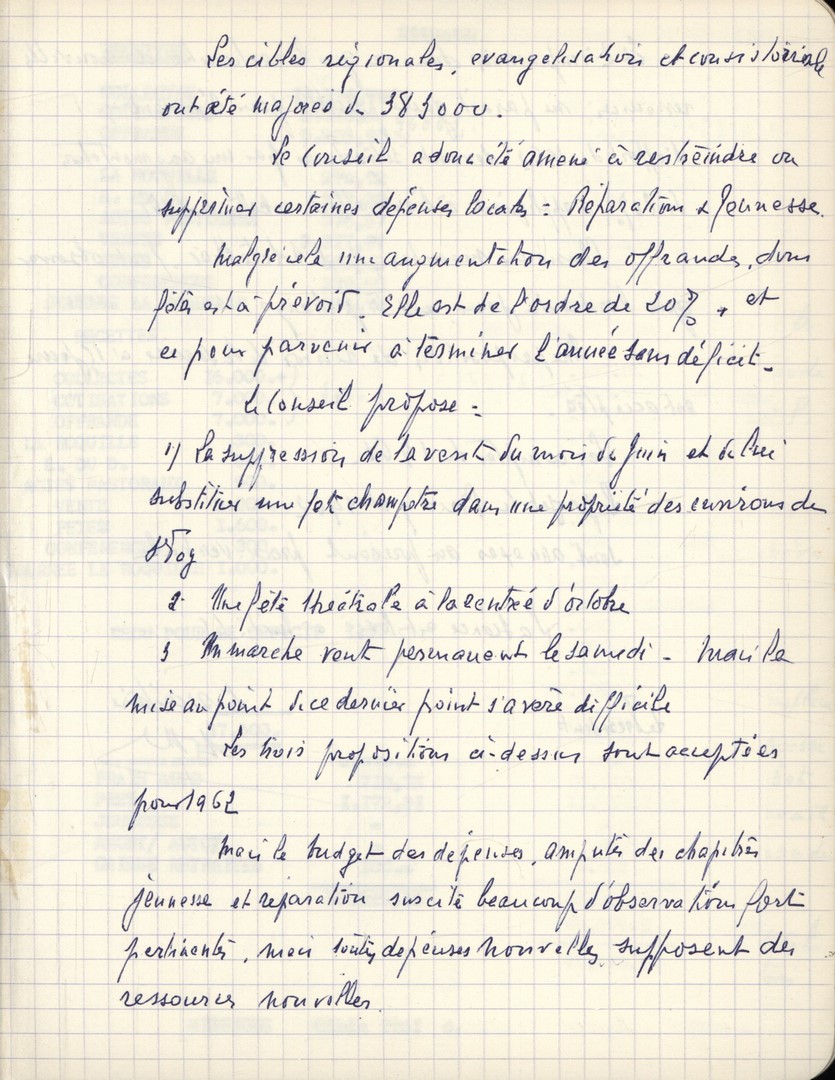 Les cibles régionales, evangelisation et consistoriale
ont été majorés de 383000.
Le Conseil a donc été amené à restreindre ou
supprimer certaines dépenses locales = Réparations & Jeunesse.
Malgré cela une augmentation des offrandes, dons
fêtes est à prévoir. Elle est de l'ordre de 20%, et
ce pour parvenir à terminer l'année sans déficit.
Le Conseil propose =
1) La suppression de la vente du mois de Juin et de lui
substituer une fete champetre dans une propriété des environs de
St Tog
2. Une fête théâtrale à la rentrée d'octobre
3 Un marche vente permanent le samedi - Mais la
mise au point de ce dernier point s'avère difficile
Les trois propositions ci-dessus sont acceptées
pour 1962
Mais le budget des dépenses, amputés des chapitres
jeunesse et réparation suscite beaucoup d'observations fort
pertinentes, mais toutes dépenses nouvelles supposent des
ressources nouvelles.